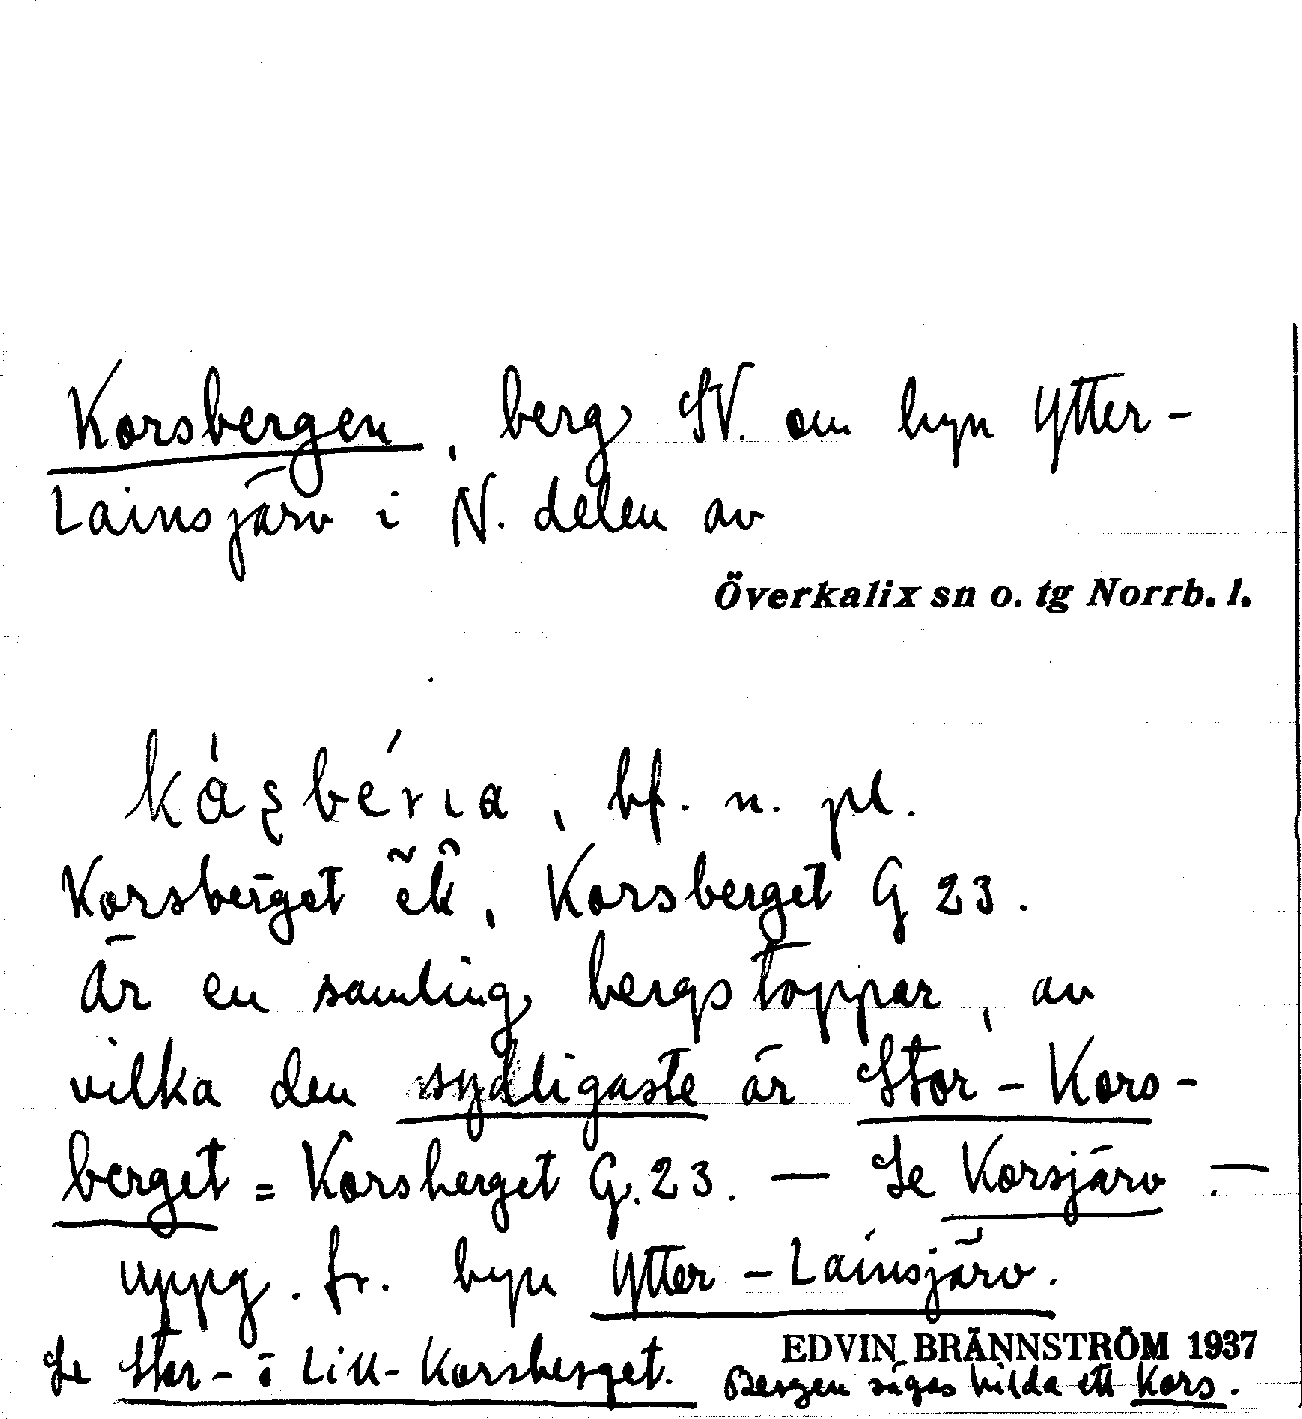 Korsbergen, berg SV. om byn Ytter-
Lainsjärv i N. delen av
Överkalix sn o. tg Norrb. l.
bf. n. pl.
Korsberget ek, Korsberget G 23.
Är en samling bergstoppar, av
vilka den sydligaste är Stor-Kors-
berget = Korsberget G. 23. — Se Korsjärv. —
uppg. fr. byn Ytter-Lainsjärv.
Se Stor- o Lill-Korsberget.
EDVIN BRÄNNSTRÖM 1937
Bergen sägas bilda ett Kors.